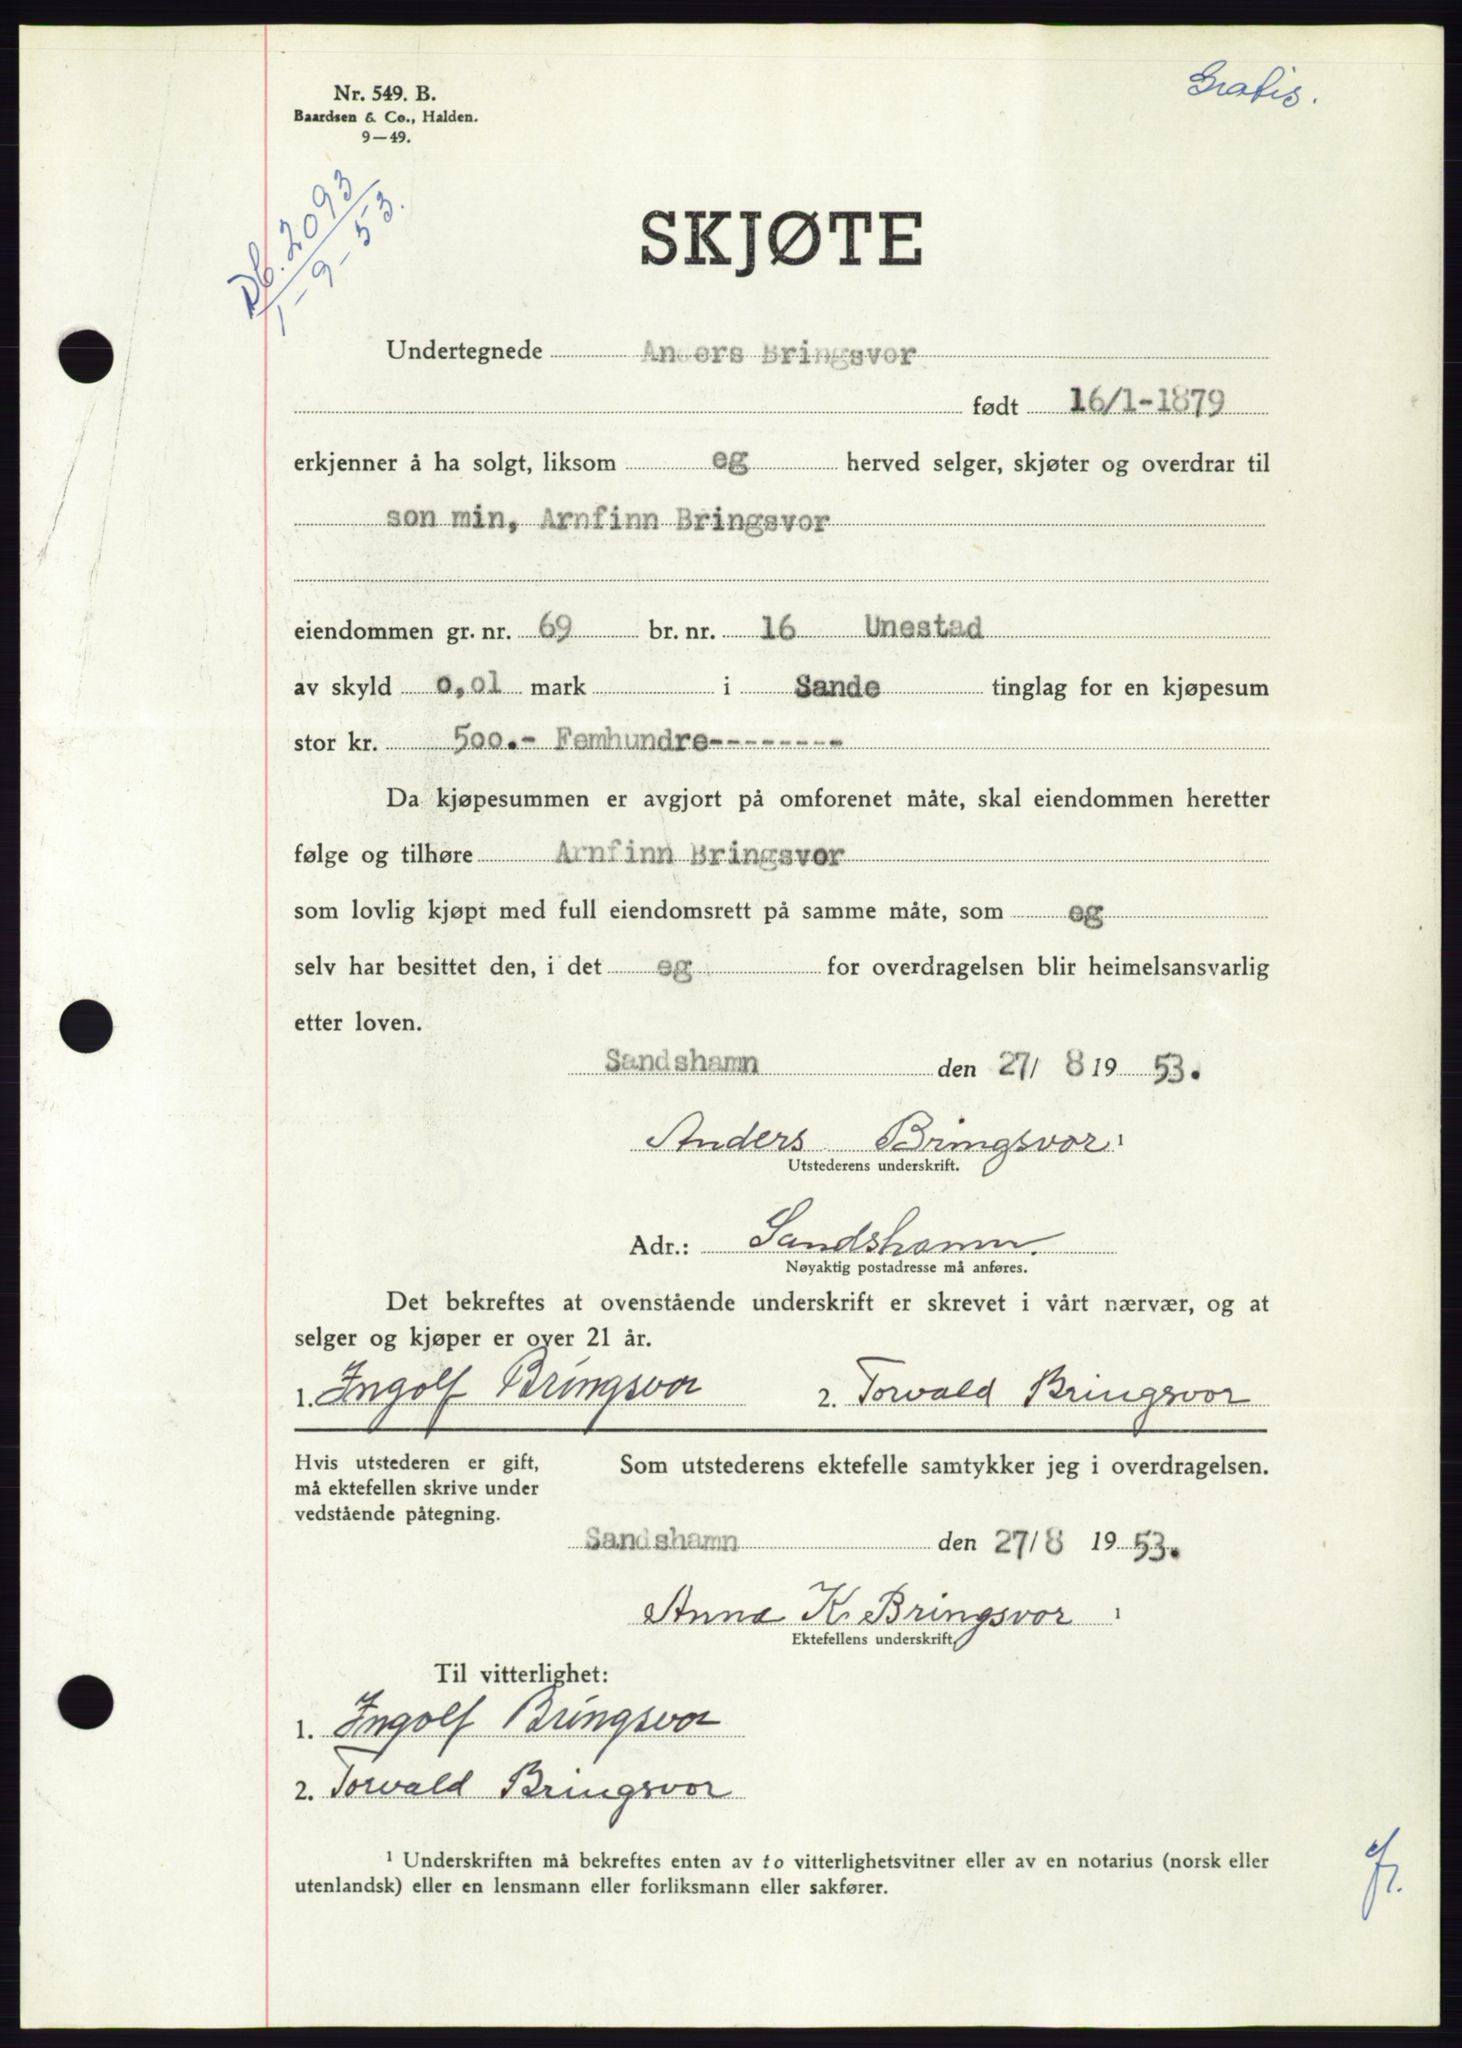 Nr. 549. B.
Baardsen & Co., Halden.
9—49.
Gratis.
Db. 2093
1-9-53.
SKJØTE
Undertegnede Anders Bringsvor
født 16/1-1879
erkjenner å ha solgt, liksom eg herved selger, skjøter og overdrar til
son min, Arnfinn Bringsvor
eiendommen gr. nr. 69 br. nr. 16 Unestad
av skyld 0,01 mark i Sande tinglag for en kjøpesum
stor kr. 500.- Femhundre---------
Da kjøpesummen er avgjort på omforenet måte, skal eiendommen heretter
følge og tilhøre Arnfinn Bringsvor
som lovlig kjøpt med full eiendomsrett på samme måte, som eg
selv har besittet den, i det eg for overdragelsen blir heimelsansvarlig
etter loven.
Sandshamn den 27/ 8 19 53.
Anders Bringsvor 1
Utstederens underskrift.
Adr.: Sandshamn.
Nøyaktig postadresse må anføres.
Det bekreftes at ovenstående underskrift er skrevet i vårt nærvær, og at
selger og kjøper er over 21 år.
1. Ingolf Bringsvor 2. Torvald Bringsvor
Hvis utstederen er gift,
må ektefellen skrive under
vedstående påtegning.
Som utstederens ektefelle samtykker jeg i overdragelsen.
Sandshamn den 27/8 19 53.
Anna K. Bringsvor 1
Ektefellens underskrift.
Til vitterlighet:
1. Ingolf Bringsvor
2. Torvald Bringsvor
1 Underskriften må bekreftes enten av to vitterlighetsvitner eller av en notarius (norsk eller
utenlandsk) eller en lensmann eller forliksmann eller sakfører.